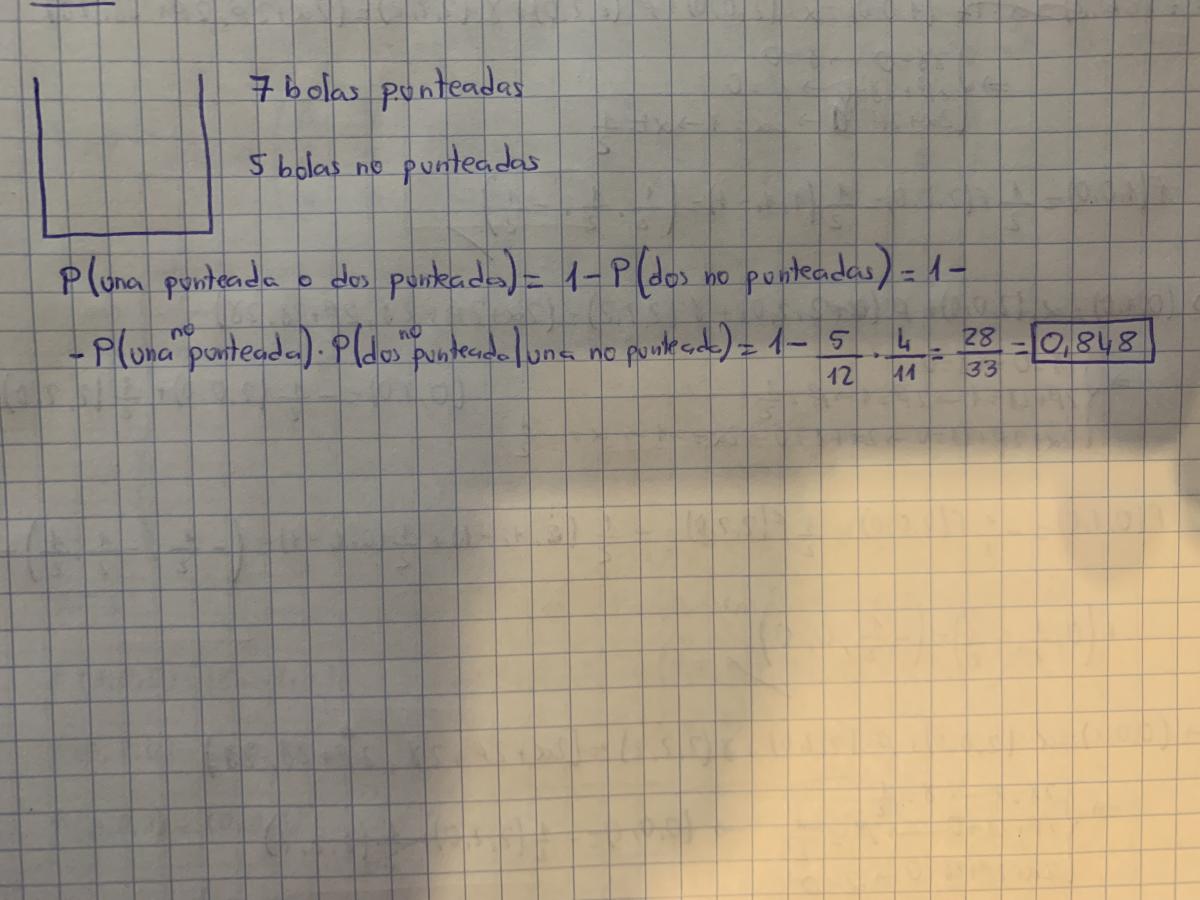 7 bolas punteadas
5 bolas no punteadas
P(una punteada o dos punteada) = 1 - P(dos no punteadas) = 1 -
- P(una no punteada) · P(dos no punteada | una no punteada) = 1 - 5/12 · 4/11 = 28/33 = 0,848